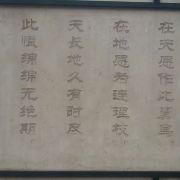 在天愿作比翼鸟
在地愿为连理枝
天长地久有时尽
此恨绵绵无绝期